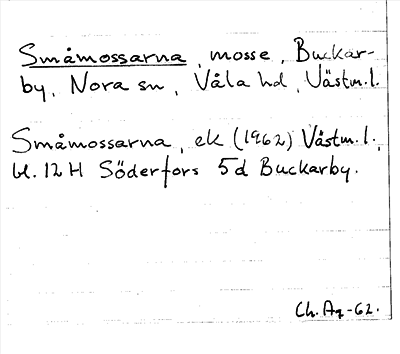 Småmossarna, mosse, Buckar-
by, Nora sn, Våla hd, Västm.l.
Småmossarna, ek (1962) Västm.l.,
bl. 12 H Söderfors 5d Buckarby.
Ch. Aq -62.